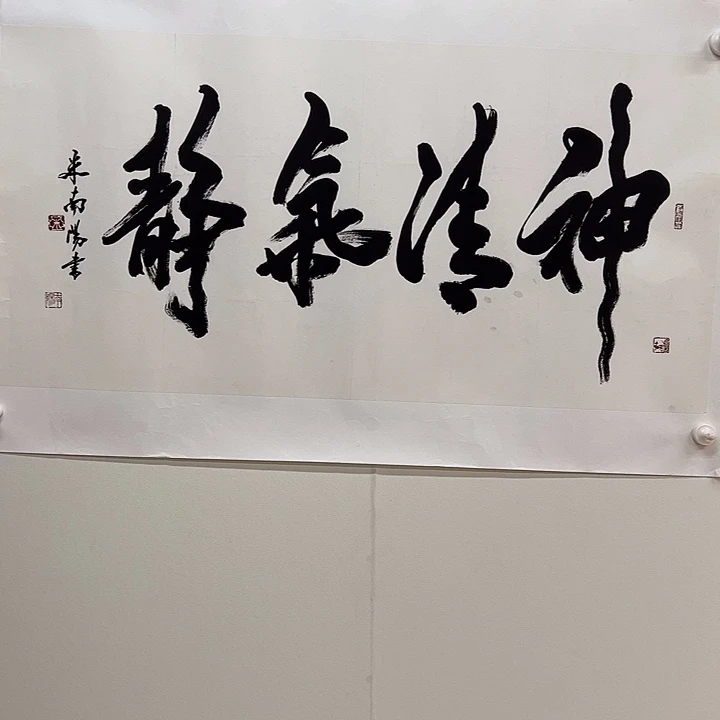 神清氣靜
米南陽書